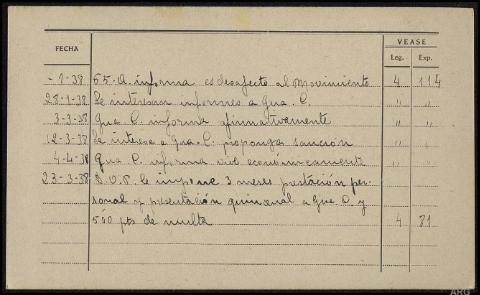 FECHA
VEASE
Leg. Exp.
- 1-38 S5-A. informa es desafecto al Movimiento 4 114
28-1-38 Se interesan informes a Gua. C. " "
3-3-38 Gua C informa afirmativamente " "
12-3-38 Se interesa a Gua-C. proponga sanción " "
4-4-38 Gua C. informa económicamente " "
23-3-38 D.O.P. le impone 3 meses prestación per-
sonal y presentación quincenal a Gua C. y
500 pts de multa 4 81
ARG